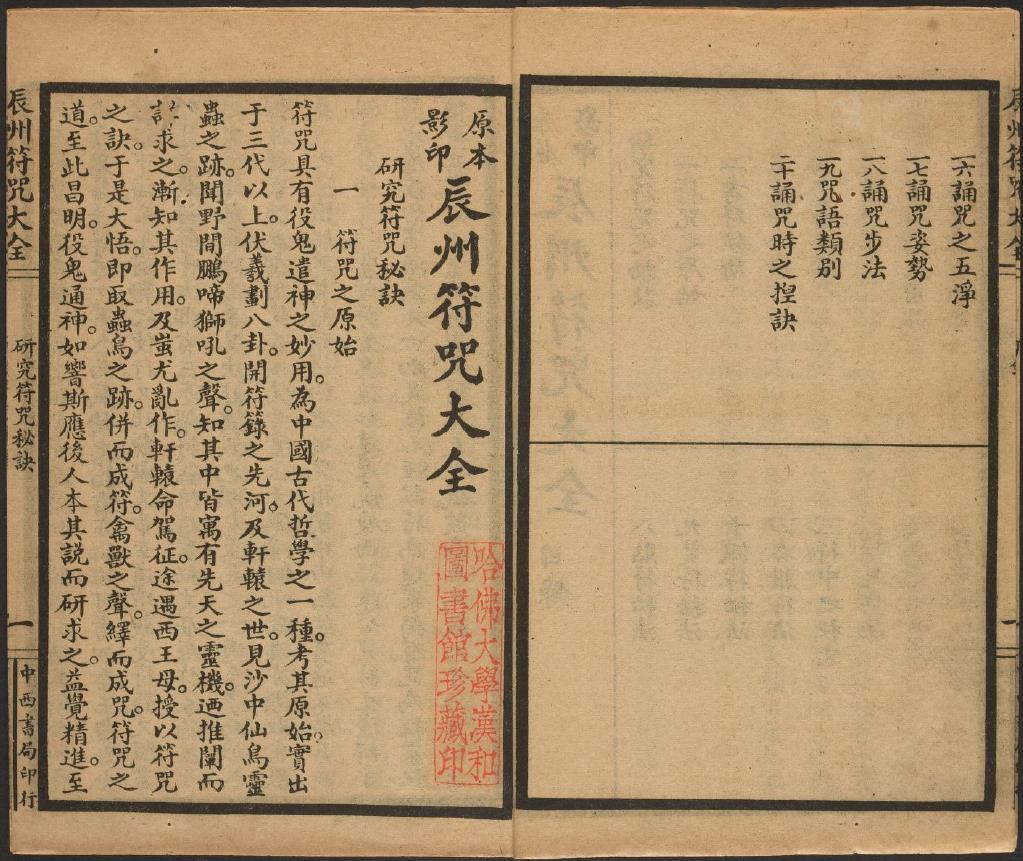 一六誦咒之五淨
一七誦咒姿勢
一八誦咒步法
一九咒語類別
二十誦咒時之揑訣
原本
影印
辰州符咒大全
研究符咒秘訣
一 符咒之原始
符咒具有役鬼遣神之妙用。為中國古代哲學之一種。考其原始。實出
于三代以上。伏羲劃八卦。開符籙之先河。及軒轅之世。見沙中仙鳥靈
蟲之跡。聞野間鵬啼獅吼之聲。知其中皆寓有先天之靈機。迺推闡而
求之。漸知其作用。及蚩尤亂作。軒轅命駕征途。遇西王母。授以符咒
之訣。于是大悟。即取蟲鳥之跡。併而成符。禽獸之聲。繹而成咒。符咒之
道。至此昌明。役鬼通神。如響斯應。後人本其說而研求之。益覺精進。至
哈佛大學漢和
圖書館珍藏印
辰州符咒大全
研究符咒秘訣
一
中西書局印行